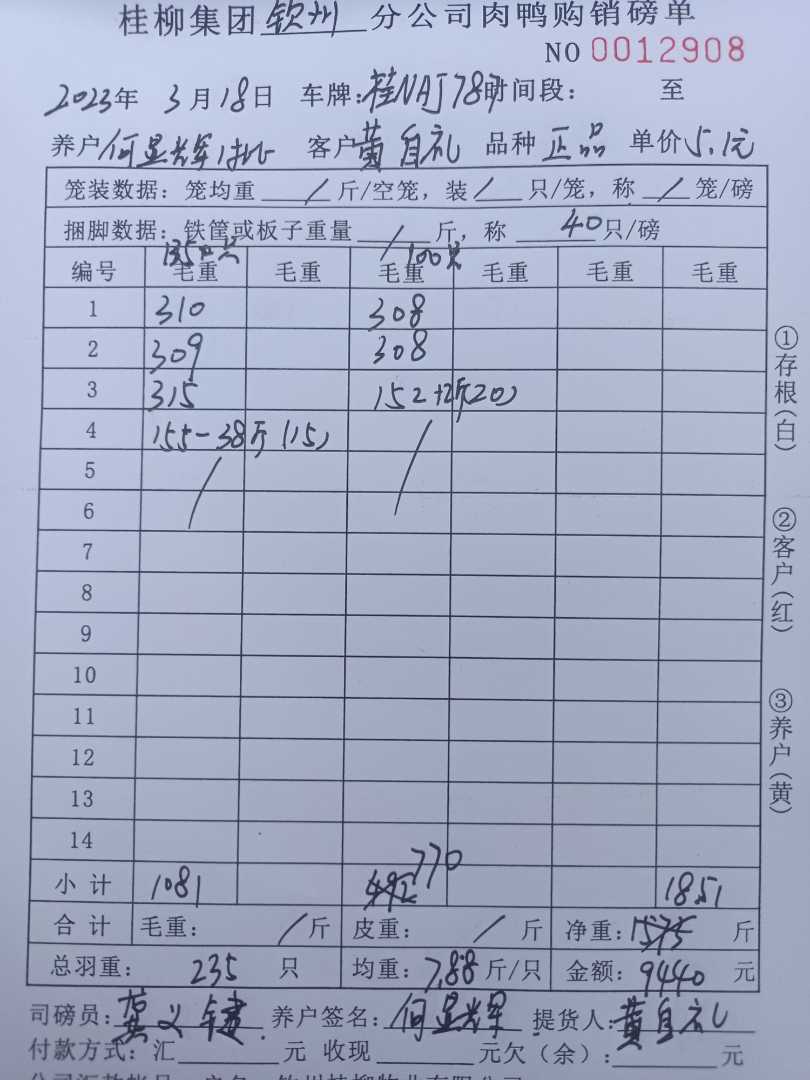 桂柳集团钦州分公司肉鸭购销磅单
NO 0012908
2023年 3月18日 车牌:桂NAJ787 时间段: 至
养户何显辉 客户黄自礼 品种正品 单价5.1元
笼装数据: 笼均重 / 斤/空笼, 装 / 只/笼, 称 / 笼/磅
捆脚数据: 铁筐或板子重量 / 斤, 称 40 只/磅
135只 100只
编号 毛重 毛重 毛重 毛重 毛重 毛重
1 310 308
2 309 308
3 315 152+2斤(20)
4 155-38斤(15)
5 / /
6
7
8
9
10
11
12
13
14
770
小计 1081 1851
合计 毛重: / 斤 皮重: / 斤 净重: 1575 斤
总羽重: 235 只 均重: 7.88 斤/只 金额: 9440 元
司磅员: 义 养户签名: 何显辉 提货人: 黄自礼
付款方式: 汇 元 收现 元欠(余): 元
①存根(白)
②客户(红)
③养户(黄)